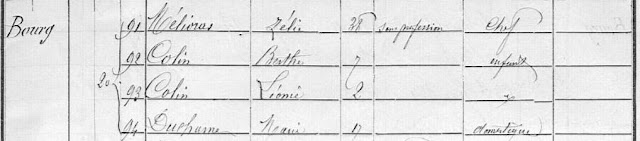 Bourg 91 Mélioras Zélie 38 sans profession Chef
92 Colin Berthe 7 enfants
20 93 Colin Léonie 2 "
94 Ducharme Marie 17 domestique